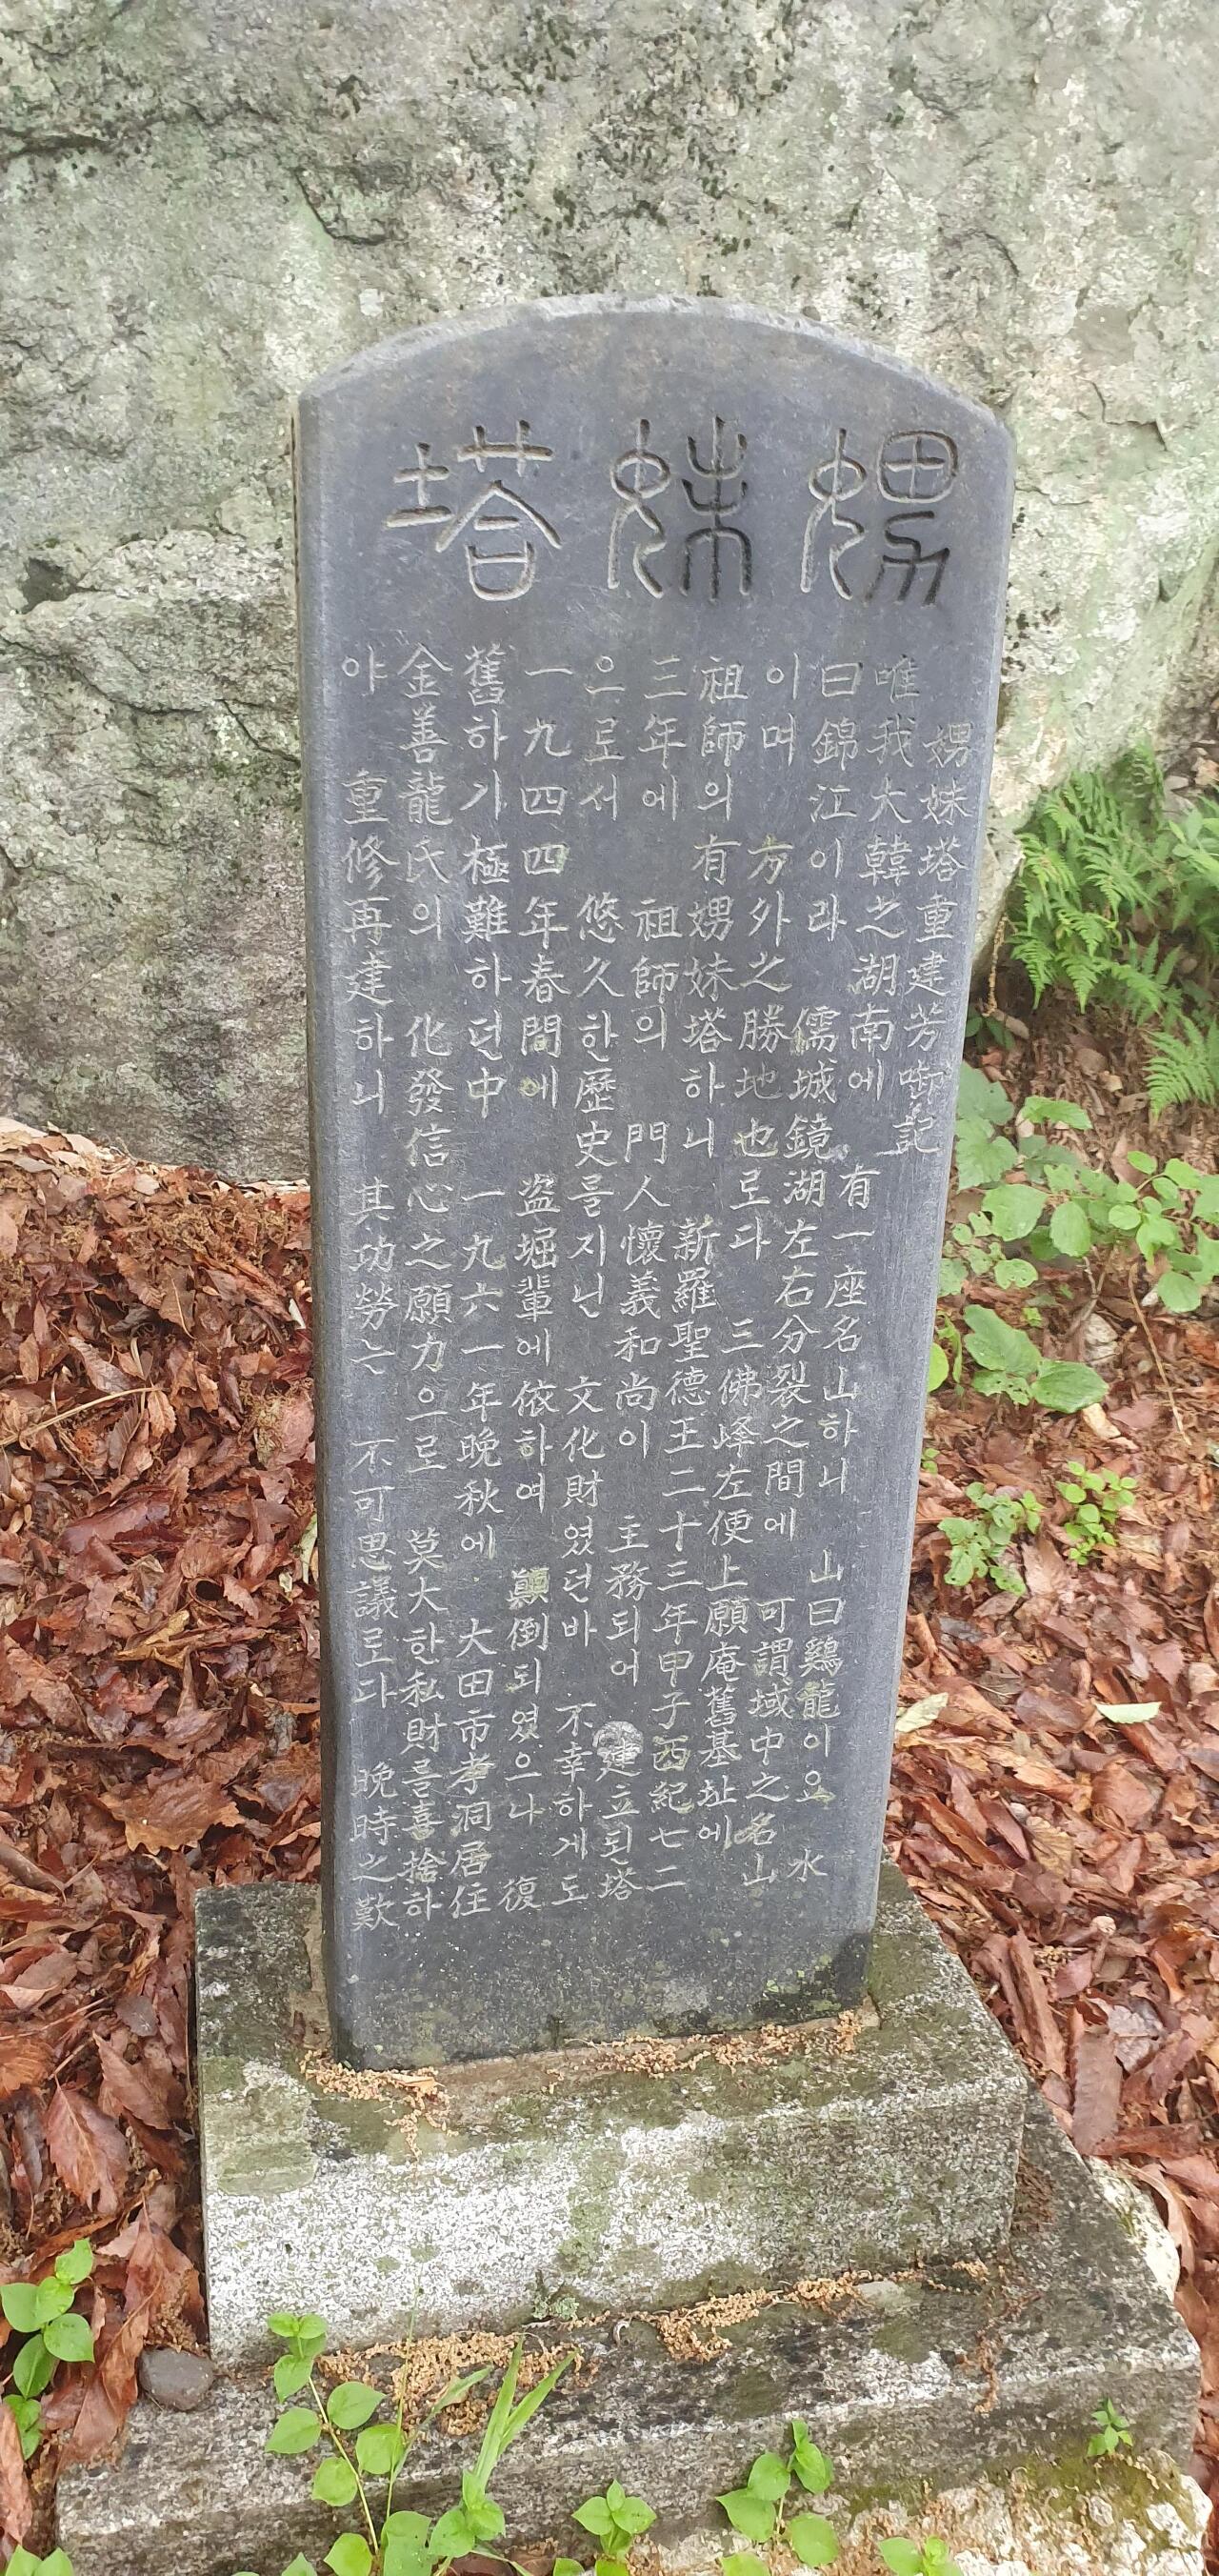 娚妹塔
娚妹塔重建芳啣記
唯我大韓之湖南에 有一座名山하니 山曰鷄龍이요 水
曰錦江이라 儒城鏡湖左右分裂之間에 可謂域中之名山
이며 方外之勝地也로다 三佛峰左便上願庵舊基址에
祖師의 有娚妹塔하니 新羅聖德王二十三年甲子西紀七二
三年에 祖師의 門人懷義和尚이 主務되어 建立된塔
으로서 悠久한歷史를지닌 文化財였던바 不幸하게도
一九四四年春間에 盜堀輩에依하여 顚倒되였으나 復
舊하기極難하던中 一九六一年晩秋에 大田市孝洞居住
金善龍氏의 化發信心之願力으로 莫大한私財를喜捨하
야 重修再建하니 其功勞는 不可思議로다 晩時之歎